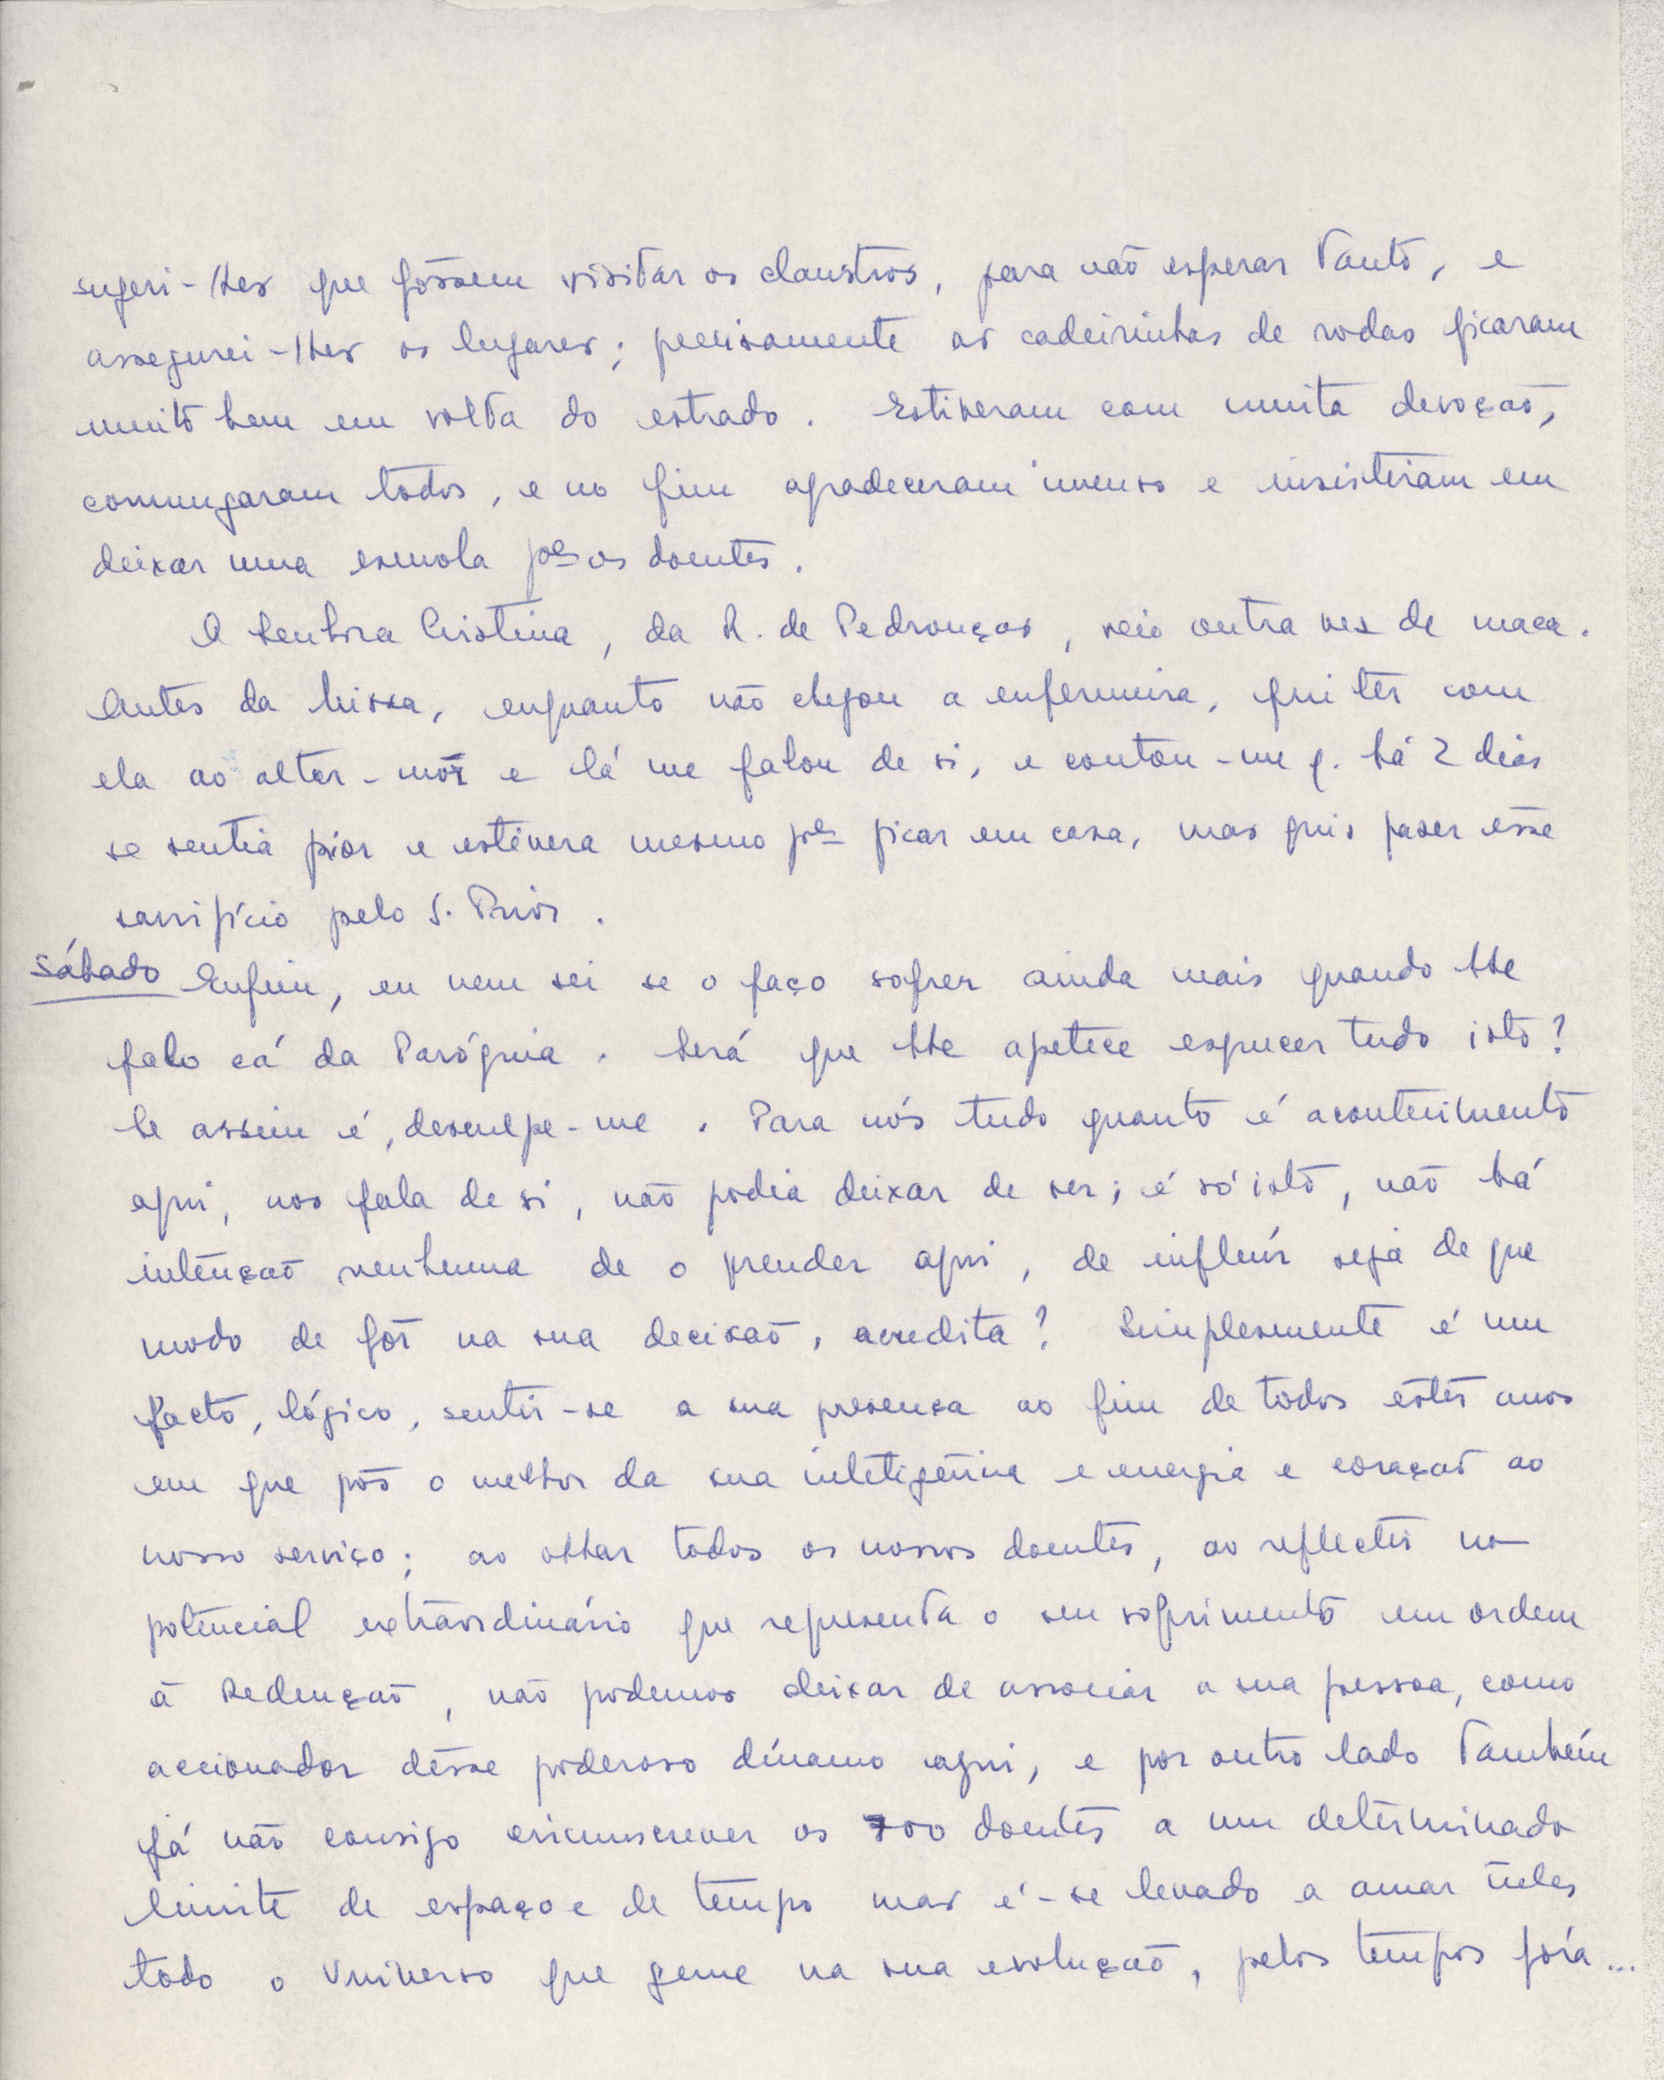 sugeri-lhes que fôssem visitar os claustros, para não esperar tanto, e
assegurei-lhes os lugares; precisamente as cadeirinhas de rodas ficaram
muito bem em volta do estrado. Estiveram com muita devoção,
comungaram todos, e no fim agradeceram imenso e insistiram em
deixar uma esmola pª os doentes.
A Senhora Cristina, da R. de Pedrouços, veio outra vez de maca.
Antes da Missa, enquanto não chegou a enfermeira, fui ter com
ela ao altar-mór e lá me falou de si, e contou-me q. há 2 dias
se sentia pior e estivera mesmo pª ficar em casa, mas quis fazer êsse
sacrifício pelo S. Prior.
Sábado Enfim, eu nem sei se o faço sofrer ainda mais quando lhe
falo cá da Paróquia. Será que lhe apetece esquecer tudo isto?
Se assim é, desculpe-me. Para nós tudo quanto é acontecimento
aqui, nos fala de si, não podia deixar de ser; é só isto, não há
intenção nenhuma de o prender aqui, de influír seja de que
modo de fôr na sua decisão, acredita? Simplesmente é um
facto, lógico, sentir-se a sua presença ao fim de todos êstes anos
em que pôs o melhor da sua inteligência e energia e coração ao
nosso serviço; ao olhar todos os nossos doentes, ao reflectir no
potencial extraordinário que representa o seu sofrimento em ordem
à Redenção, não podemos deixar de associar a sua pessoa, como
accionador dêsse poderoso dínamo aqui, e por outro lado também
já não consigo circunscrever os 700 doentes a um determinado
limite de espaço e de tempo mas é-se levado a amar nêles
todo o Universo que geme na sua evolução, pelos tempos fóra...